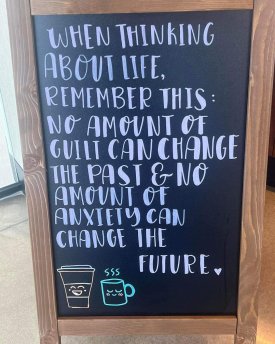 WHEN THINKING
ABOUT LIFE,
REMEMBER THIS:
NO AMOUNT OF
GUILT CAN CHANGE
THE PAST & NO
AMOUNT OF
ANXIETY CAN
CHANGE THE
FUTURE. ♥
$$$